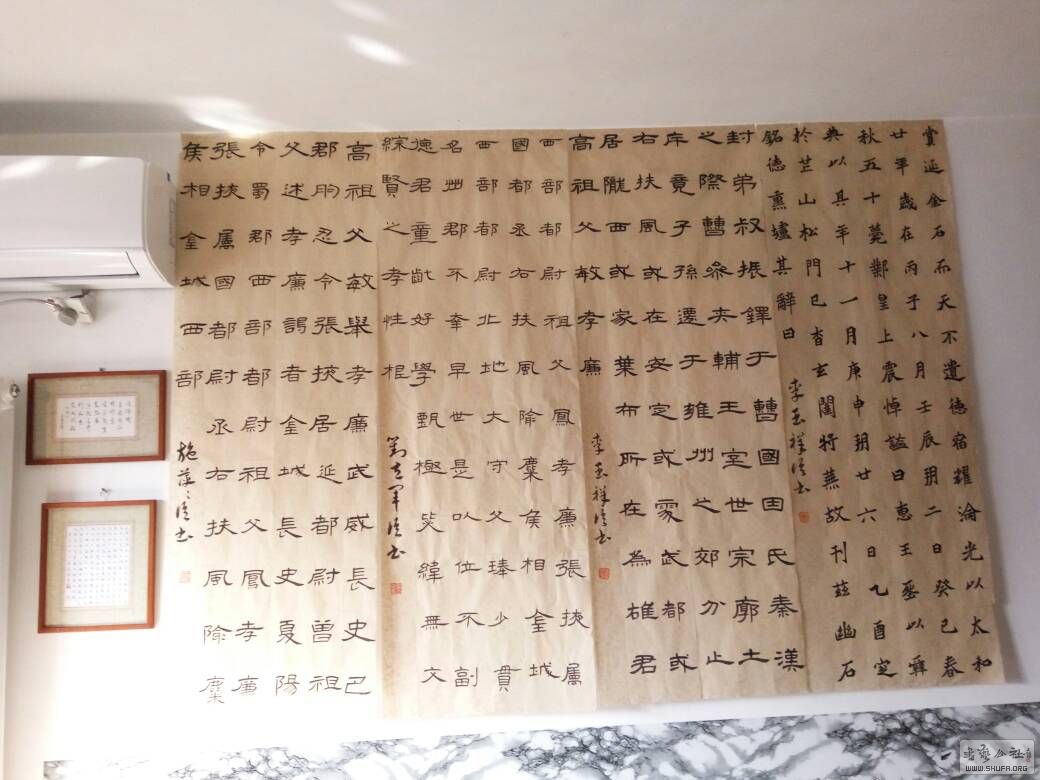 賞延金石而天不遺德宿耀淪光以太和
廿年歲在丙子八月壬辰玥二日癸巳春
秋五十薨鄴皇上震悼謚曰惠王葬以彝
典以其年十一月庚申玥廿六日乙酉定
於芷山松門已杳玄闥將蕪故刊茲幽石
銘德熏壚其辭曰
李玉祥臨书
封弟叔振鐸于曹國因氏秦漢
之際曹參夾輔王室世宗廓土
斥竟子孫遷于雍州之郊分止
右扶風或在安定或處武都或
居隴西或家葉布所在為雄君
高祖父敏孝廉
李玉祥臨书
西部都尉祖父鳳孝廉張掖屬
國都丞右扶風隃麋侯相金城
西部都尉北地大守父琫少貫
名州郡不幸早世是以位不副
德君童齔好學甄極毖緯無文
綜賢之孝性根
軍臨书
高祖父敏舉孝廉武威長史巳
郡朐忍令張掖居延都尉曾祖
父述孝廉謁者金城長史夏陽
令蜀郡西部都尉祖父鳳孝廉
張掖屬國都尉丞右扶風隃麋
侯相金城西部
施萍臨书
书藝公社
WWW.SHUFA.ORG